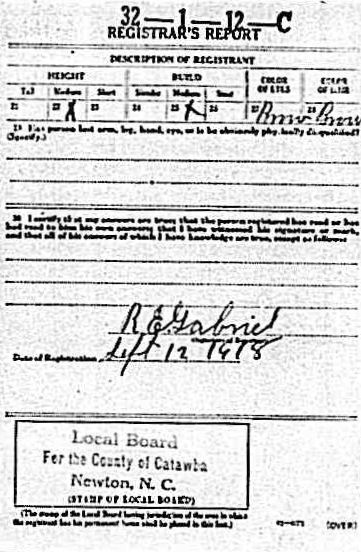 32—1—12—C
REGISTRAR'S REPORT
DESCRIPTION OF REGISTRANT
HEIGHT BUILD COLOR OF EYES COLOR OF HAIR
Tall Medium Short Slender Medium Stout
21 22 X 23 24 25 X 26 27 Brown 28 Brown
29 Has person lost arm, leg, hand, eye, or is he obviously physically disqualified?
(Specify.)
30 I certify that my answers are true; that the person registered has read or has
had read to him his own answers; that I have witnessed his signature or mark,
and that all of his answers of which I have knowledge are true, except as follows:
R E Gabriel
Date of Registration Sept 12 1918
Local Board
For the County of Catawba
Newton, N. C.
(STAMP OF LOCAL BOARD)
(The stamp of the Local Board having jurisdiction of the area in which
the registrant has his permanent home shall be placed in this box.)
(OVER)